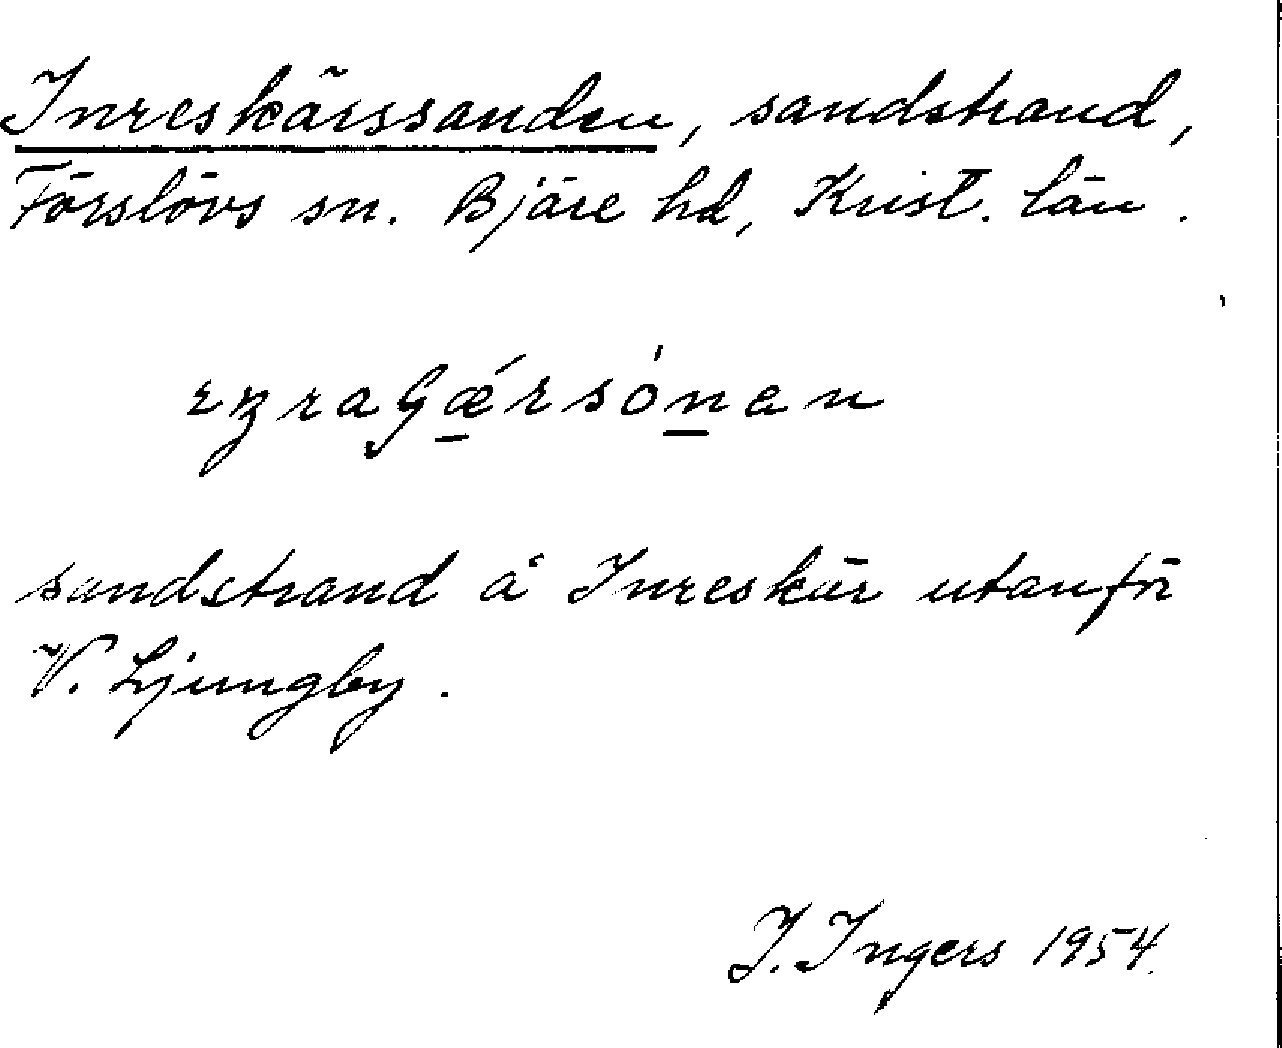 Inreskärssanden, sandstrand,
Förslövs sn. Bjäre hd, Krist. län.
sandstrand å Inreskär utanför
V. Ljungby.
I. Ingers 1954.